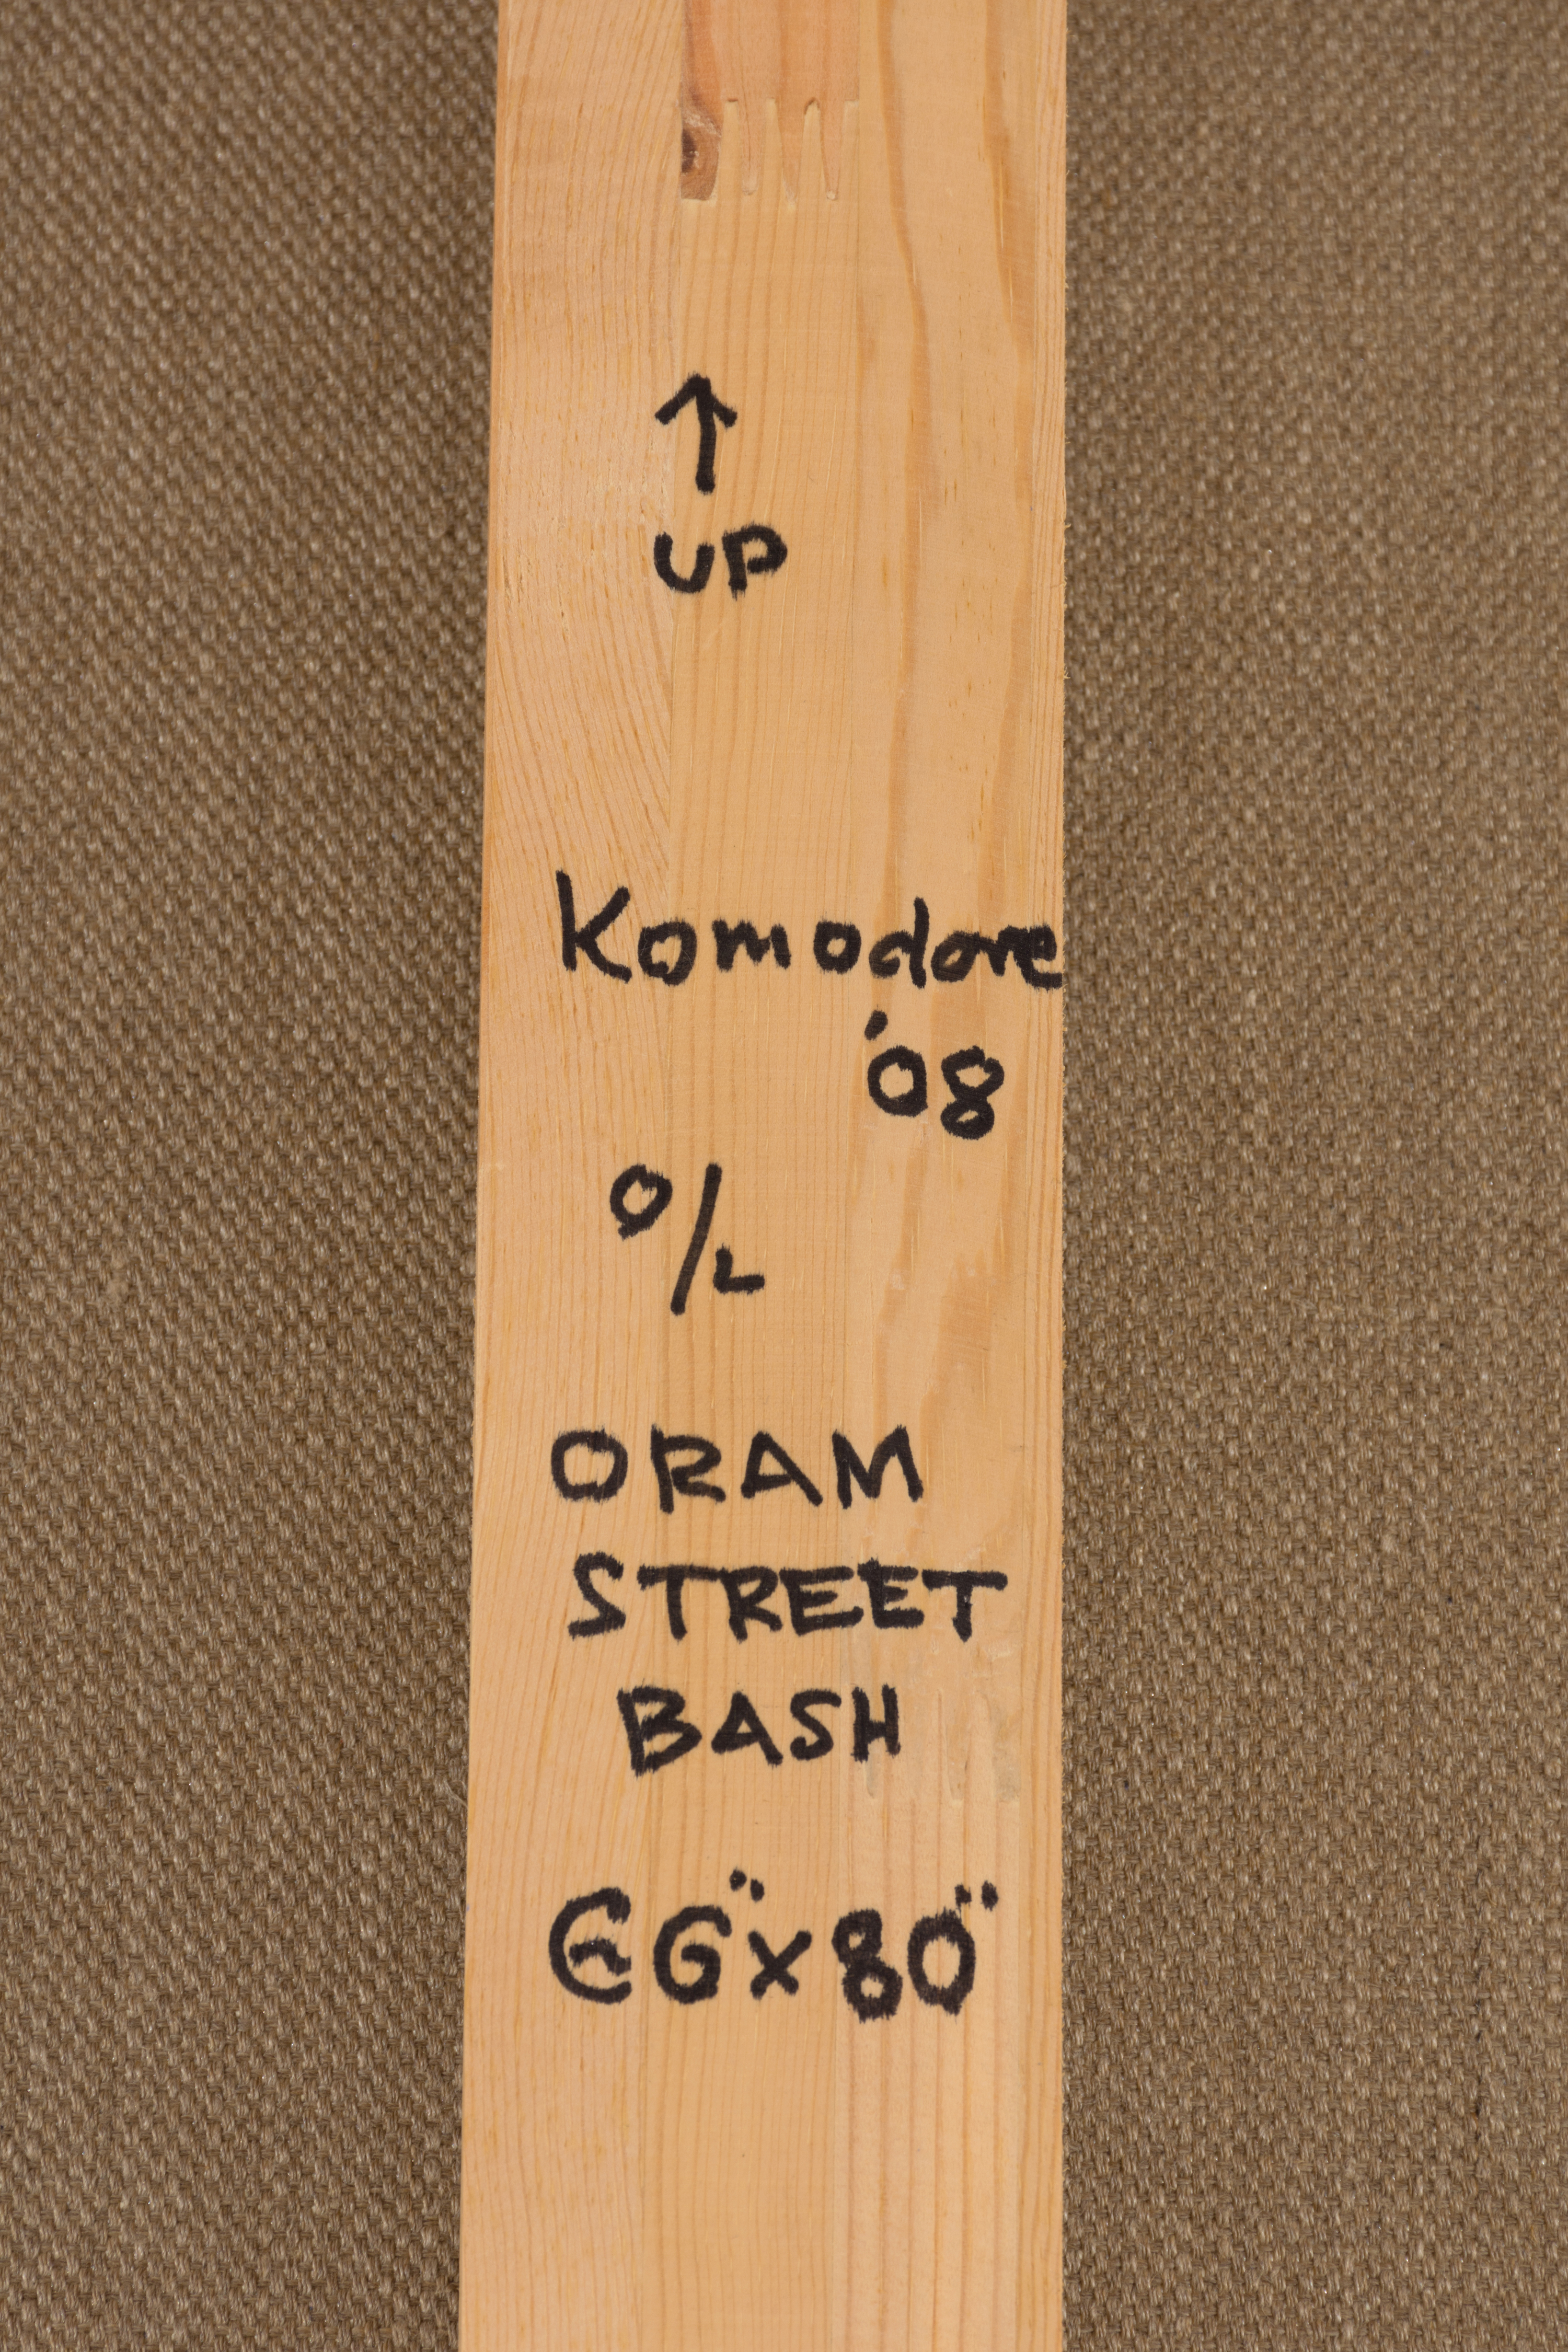 ↑
UP
Komodore
'08
O/L
ORAM
STREET
BASH
66" x 80"